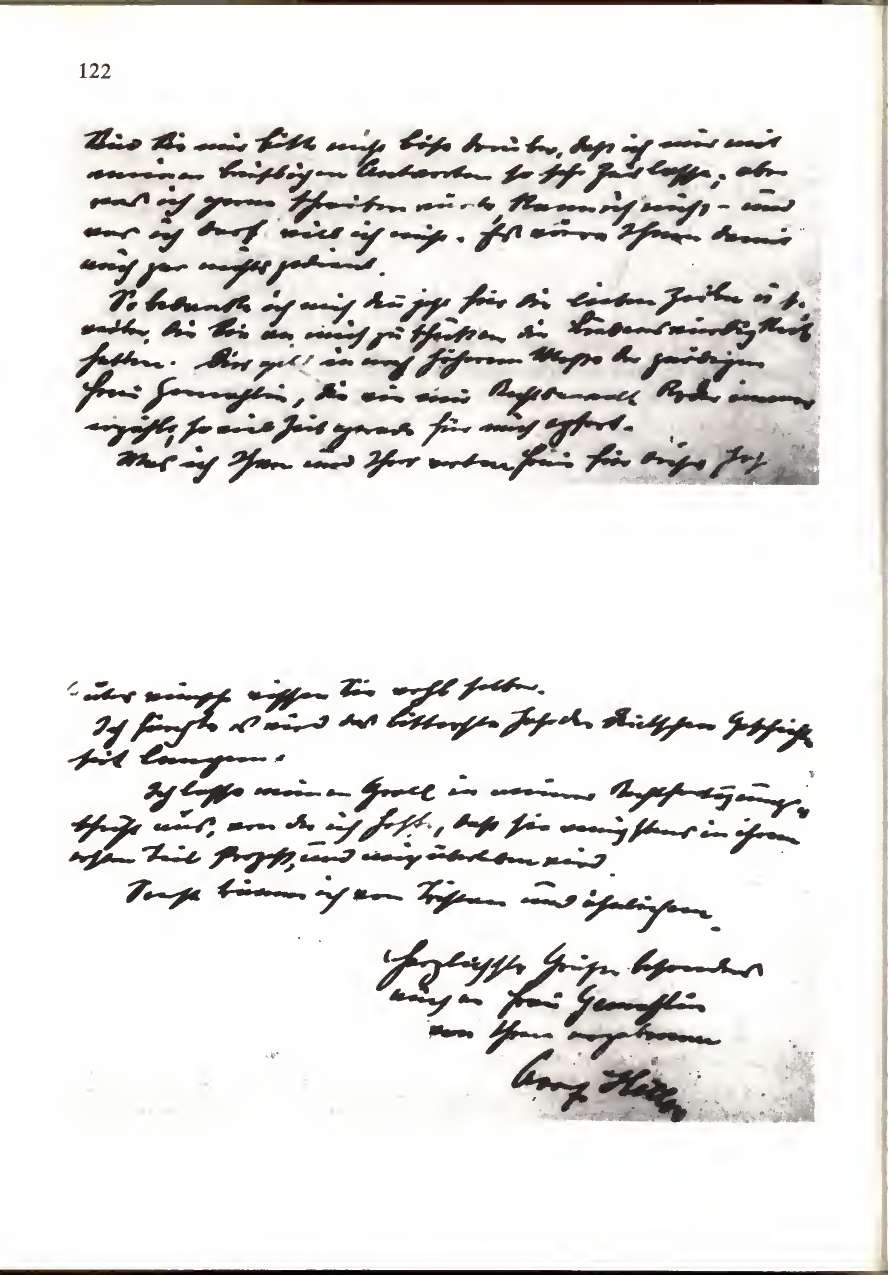 122
Sind Sie mir bitte nicht böse darüber, daß ich mir mit
meinen brieflichen Antworten so sehr Zeit lasse; aber
was ich gerne schreiben würde, kann ich nicht - und
was ich darf will ich nicht. Es wäre Ihnen damit
auch gar nichts gedient.
So bedanke ich mich denn jetzt für die lieben Zeilen u. s.
weiter, die Sie an mich zu schicken die Liebenswürdigkeit
hatten. Dies gilt in noch höherem Maße der gnädigen
Frau Gemahlin, die wie mir Rechtsanwalt Roder immer
erzählt, so viel Zeit gerade für mich opfert.
Was ich Ihnen und Ihrer werten Frau für dieses Jahr
über wünsche wissen Sie wohl selber.
Ich fürchte es wird das bitterste Jahr der deutschen Geschichte
seit langem.
Ich lasse meinen Groll in meiner Rechtfertigungs-
schrift aus, von der ich hoffe, daß sie wenigstens in ihrem
ersten Teil Prozeß, und mich überleben wird.
Sonst träume ich von Tristan und ähnlichem.
Herzlichste Grüße besonders
auch an Frau Gemahlin
von Ihrem ergebenen
Adolf Hitler